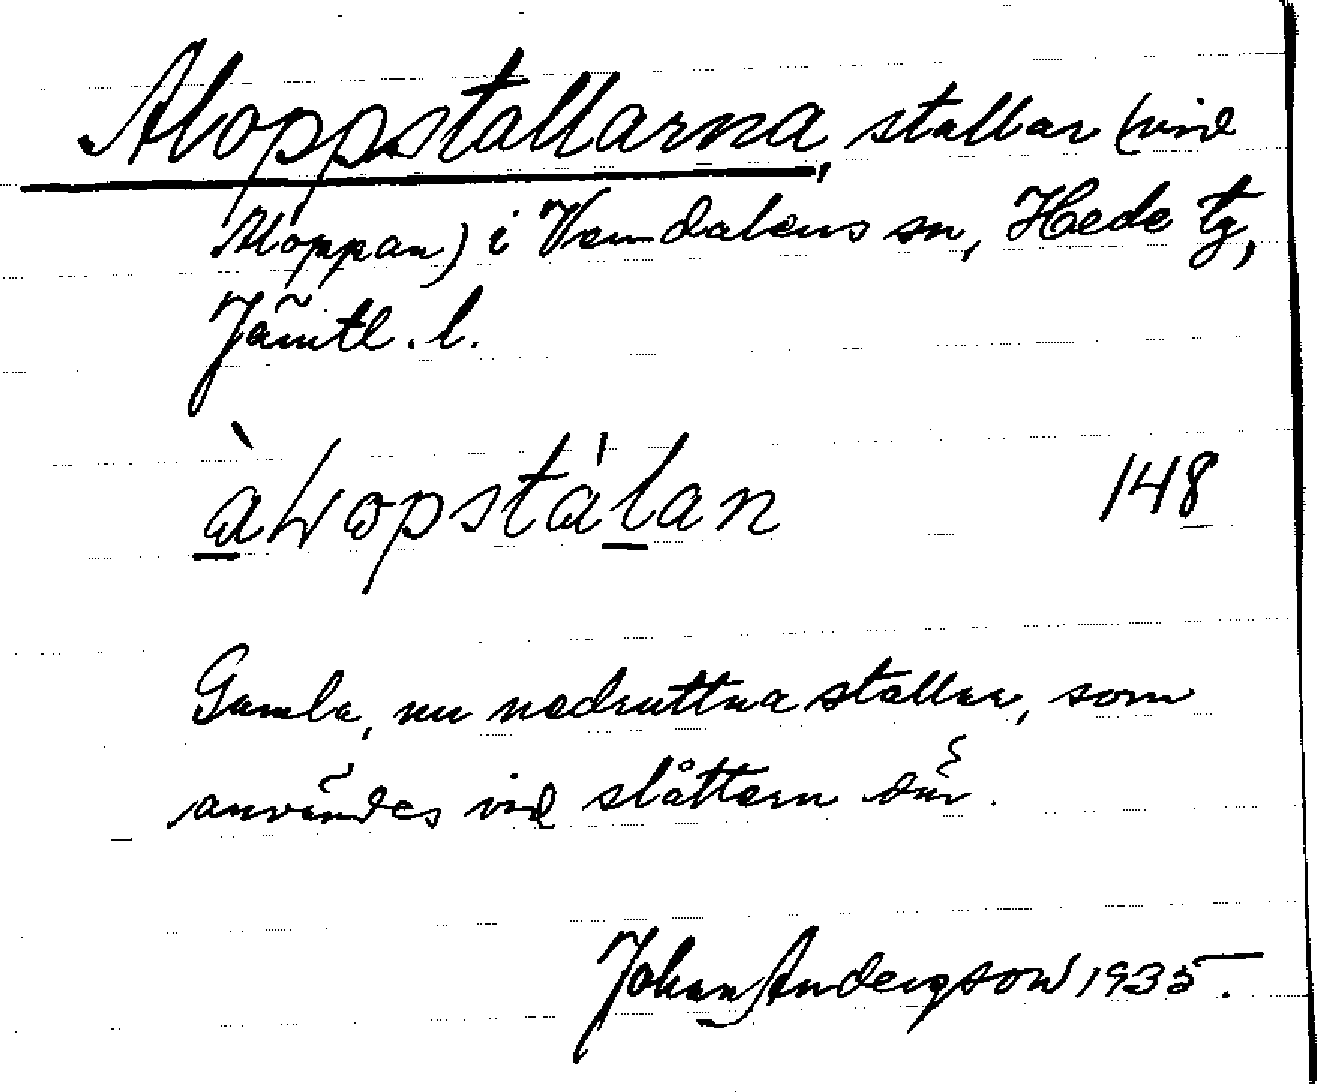 Aloppstallarna, stallar (vid
Aloppan) i Vemdalens sn, Hede tg,
Jämtl. l.
àlωopstálan 148
Gamla, nu nedruttna stallar, som
användes vid slåttern där.
Johan Andersson 1935.